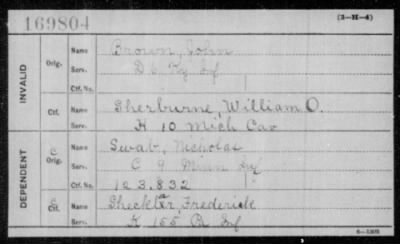 169804
(3-H-4)
INVALID
Orig.
Name Brown, John
Serv. D 6 Ky Inf
Ctf. No.
Ctf.
Name Sherburne, William O.
Serv. K 10 Mich Cav
DEPENDENT
C
Orig.
Name Swab, Nicholas
Serv. C 9 Minn Inf
Ctf. No. 123.832
C
Ctf.
Name Sheckler, Frederick
Serv. K 155 Pa Inf